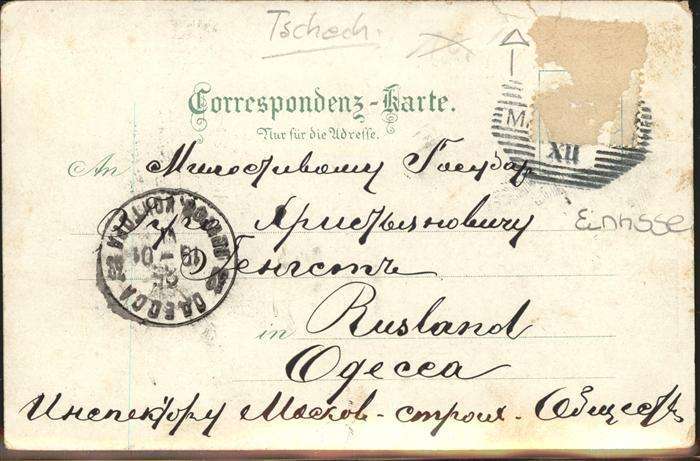 Tschech.
Correspondenz-Karte.
Nur für die Adresse.
An Милостивому Государ
Христьяновичу
Генгстъ
in Rusland
Одесса
Инспектору Москов-строих-Обществъ
M
XII
Einasse
ОДЕССА
19 01